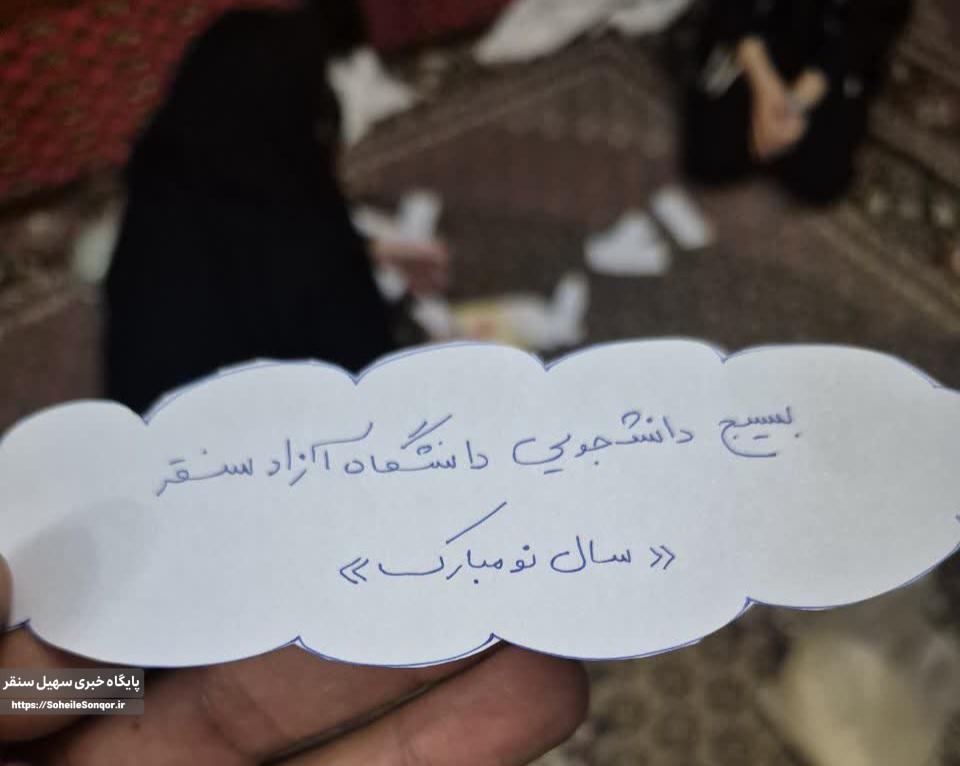 بسیج دانشجویی دانشگاه آزاد سنقر
«سال نو مبارک»
پایگاه خبری سهیل سنقر
https://SoheileSonqor.ir